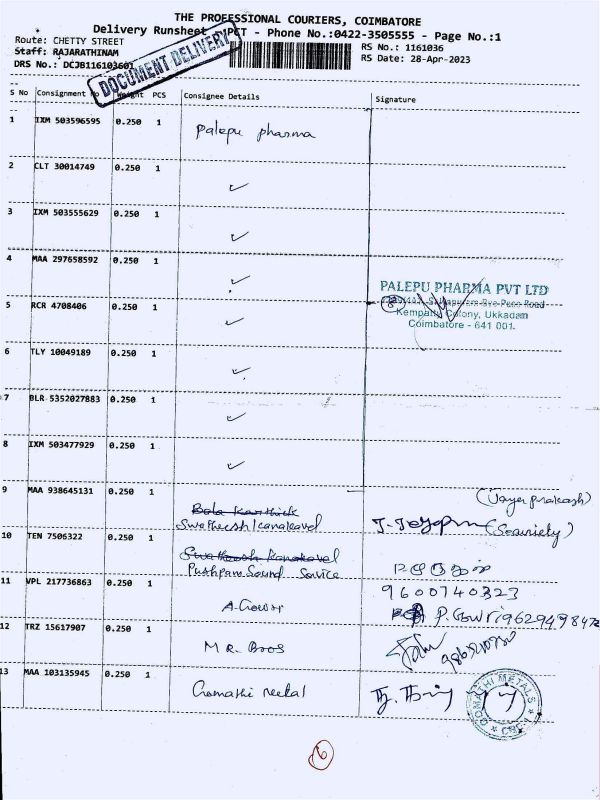 THE PROFESSIONAL COURIERS, COIMBATORE
Delivery Runsheet - PCT - Phone No.:0422-3505555 - Page No.:1
Route: CHETTY STREET
RS No.: 1161036
Staff: RAJARATHINAM
RS Date: 28-Apr-2023
DRS No.: DCJB116103601
DOCUMENT DELIVERY
S No Consignment No PCS Consignee Details Signature
1 IXM 503596595 0.250 1 Palepu pharma
2 CLT 30014749 0.250 1 ✓
3 IXM 503555629 0.250 1 ✓
4 MAA 297658592 0.250 1 ✓
PALEPU PHARMA PVT LTD
5 RCR 4708406 0.250 1 ✓
Kempatty Colony, Ukkadam
Coimbatore - 641 001.
6 TLY 10049189 0.250 1 ✓
7 BLR 5352027883 0.250 1 ✓
8 IXM 503477929 0.250 1 ✓
9 MAA 938645131 0.250 1 Bala Karthick
(Jayaprakash)
(Security)
10 TEN 7506322 0.250 1
Pushpam Sound Service
11 VPL 217736863 0.250 1 A. Gowri
9600740323
P. Gowri
12 TRZ 15617907 0.250 1 M R. Bros
13 MAA 103135945 0.250 1 Gomathi metal
GOMATHI METALS